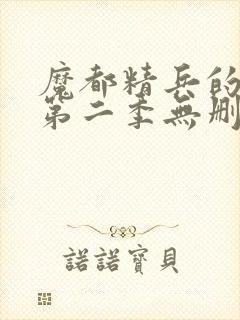 魔都精兵的
第二季無刪
諾諾寶貝